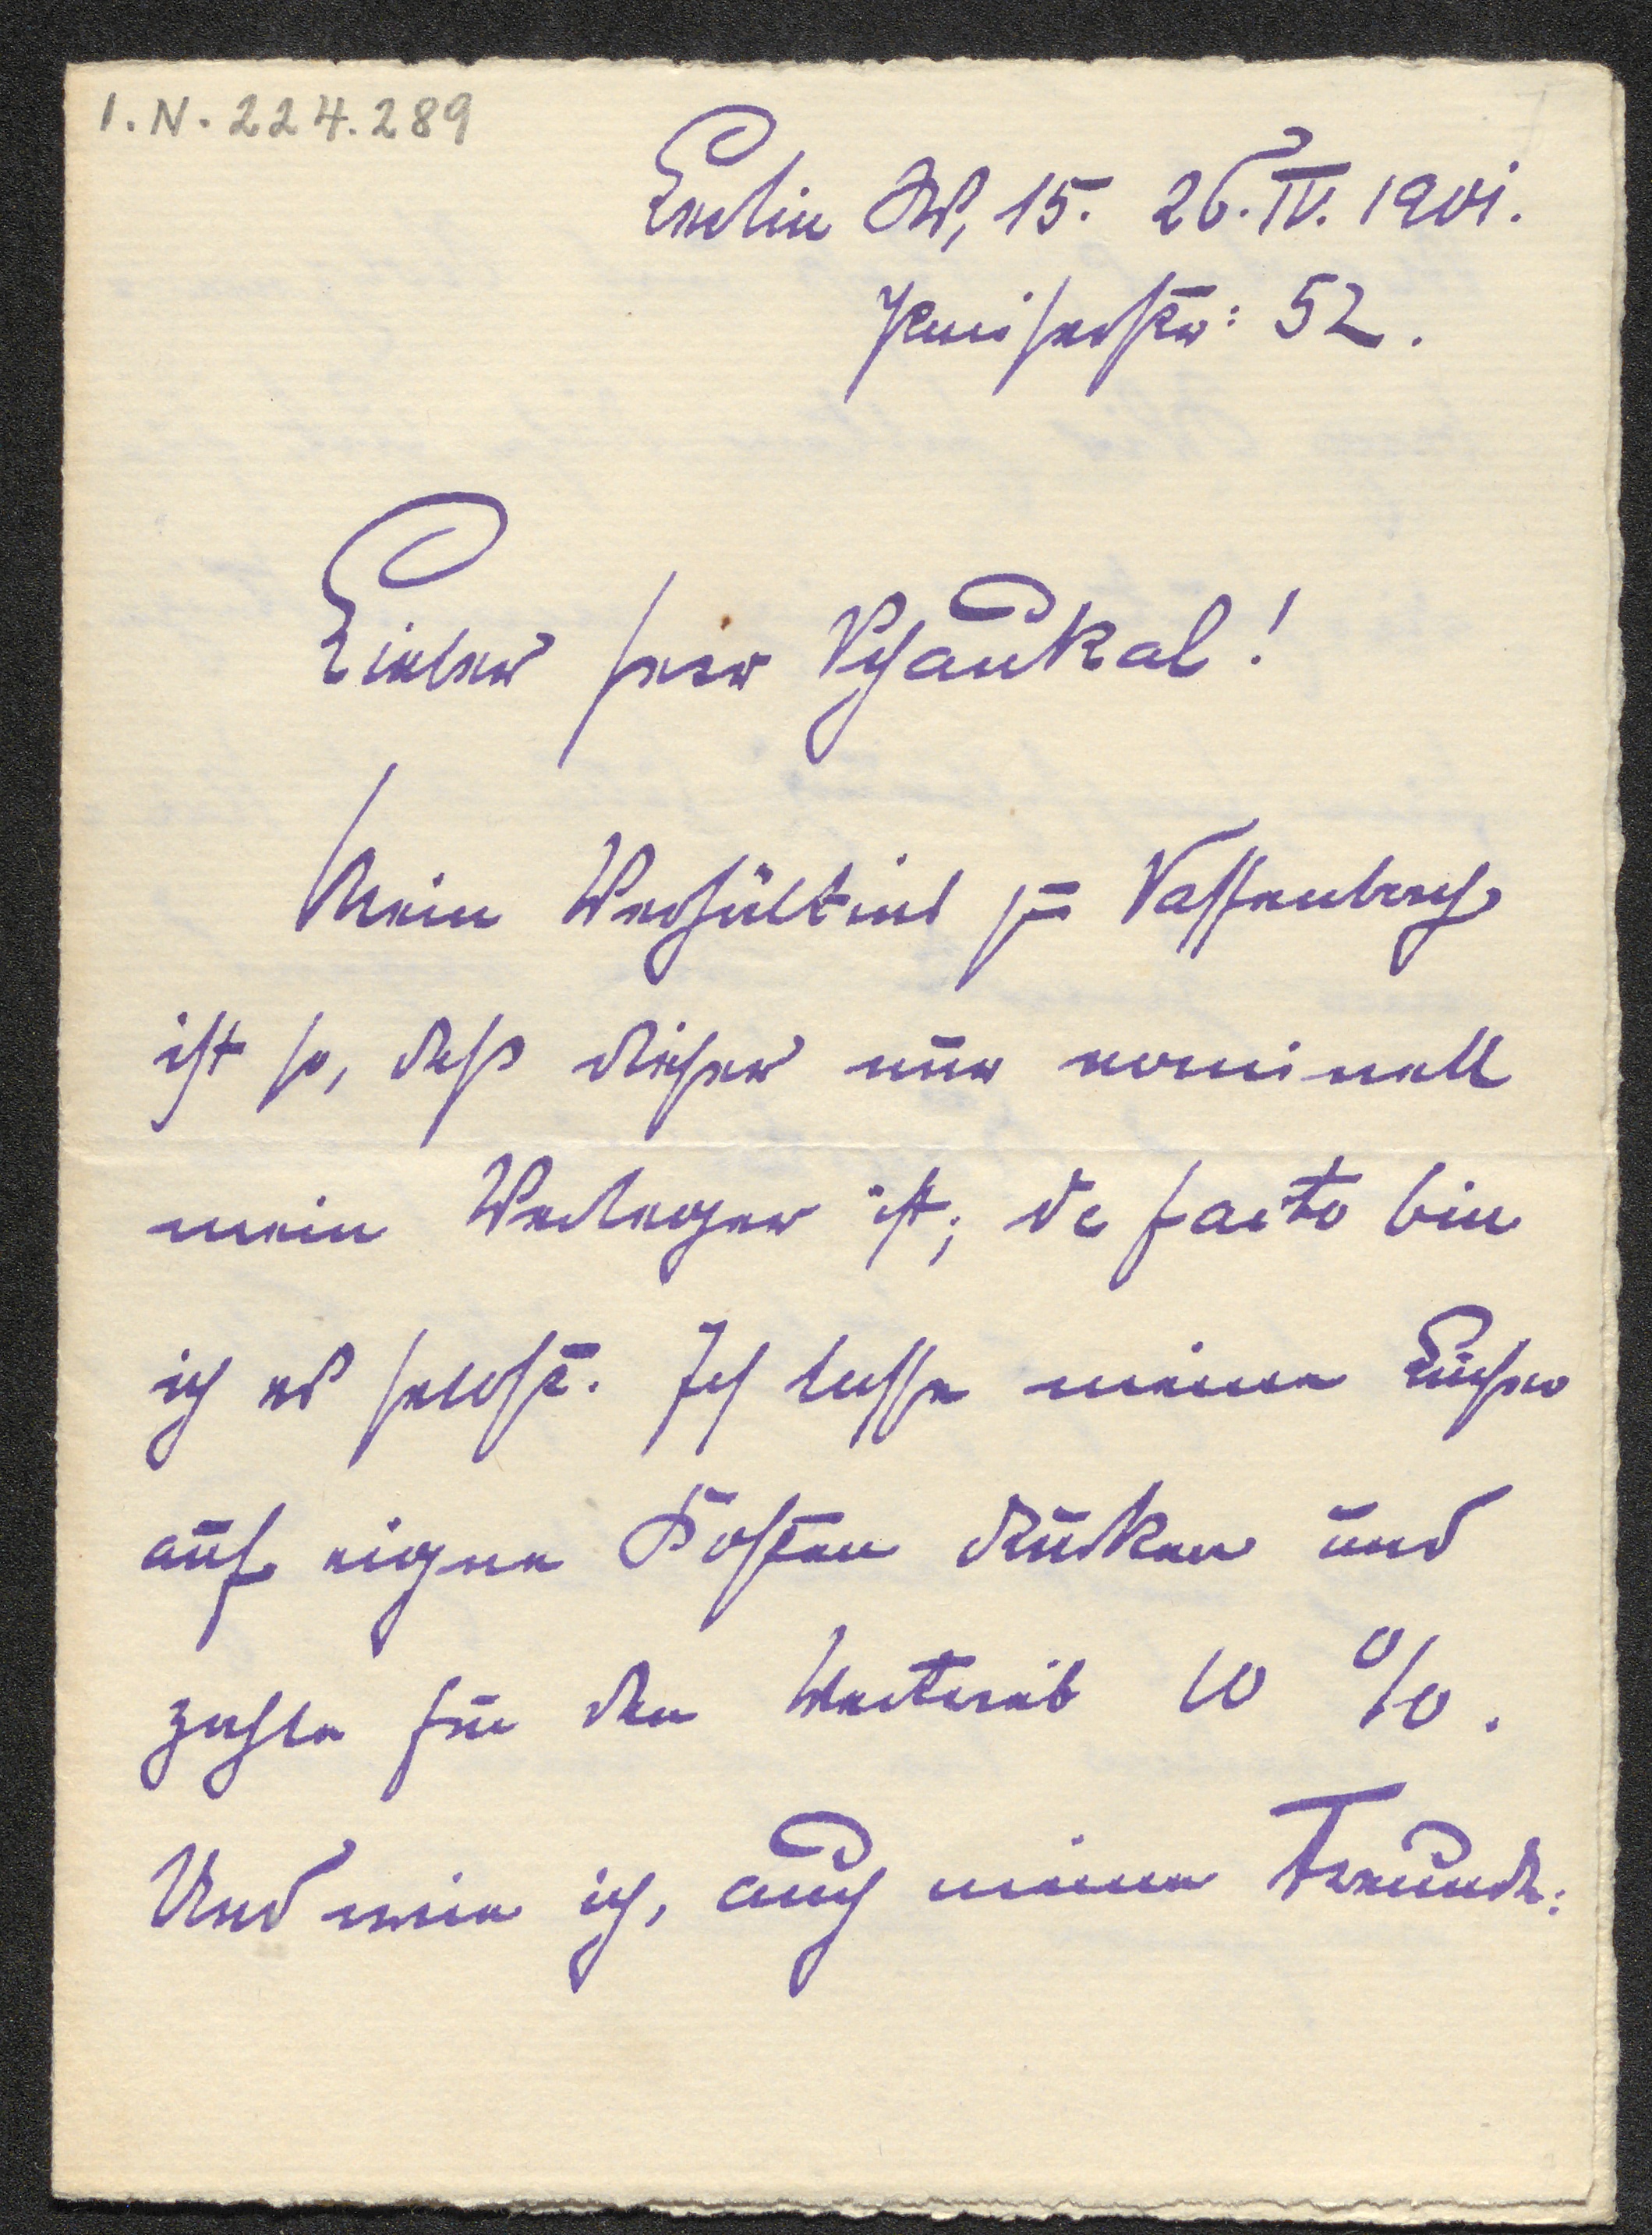 I.N. 224.289
Berlin W, 15. 26. IV. 1901.
52.
Lieber Herr Schaukal!
Mein Verhältnis zu Sassenbach
ist so, daß dieser nur nominell
mein Verleger ist; de facto bin
ich es selbst. Ich lasse meine Bücher
auf eigne Kosten drucken und
zahle für den Vertrieb 10 %.
Und wie ich, auch meine Freunde: